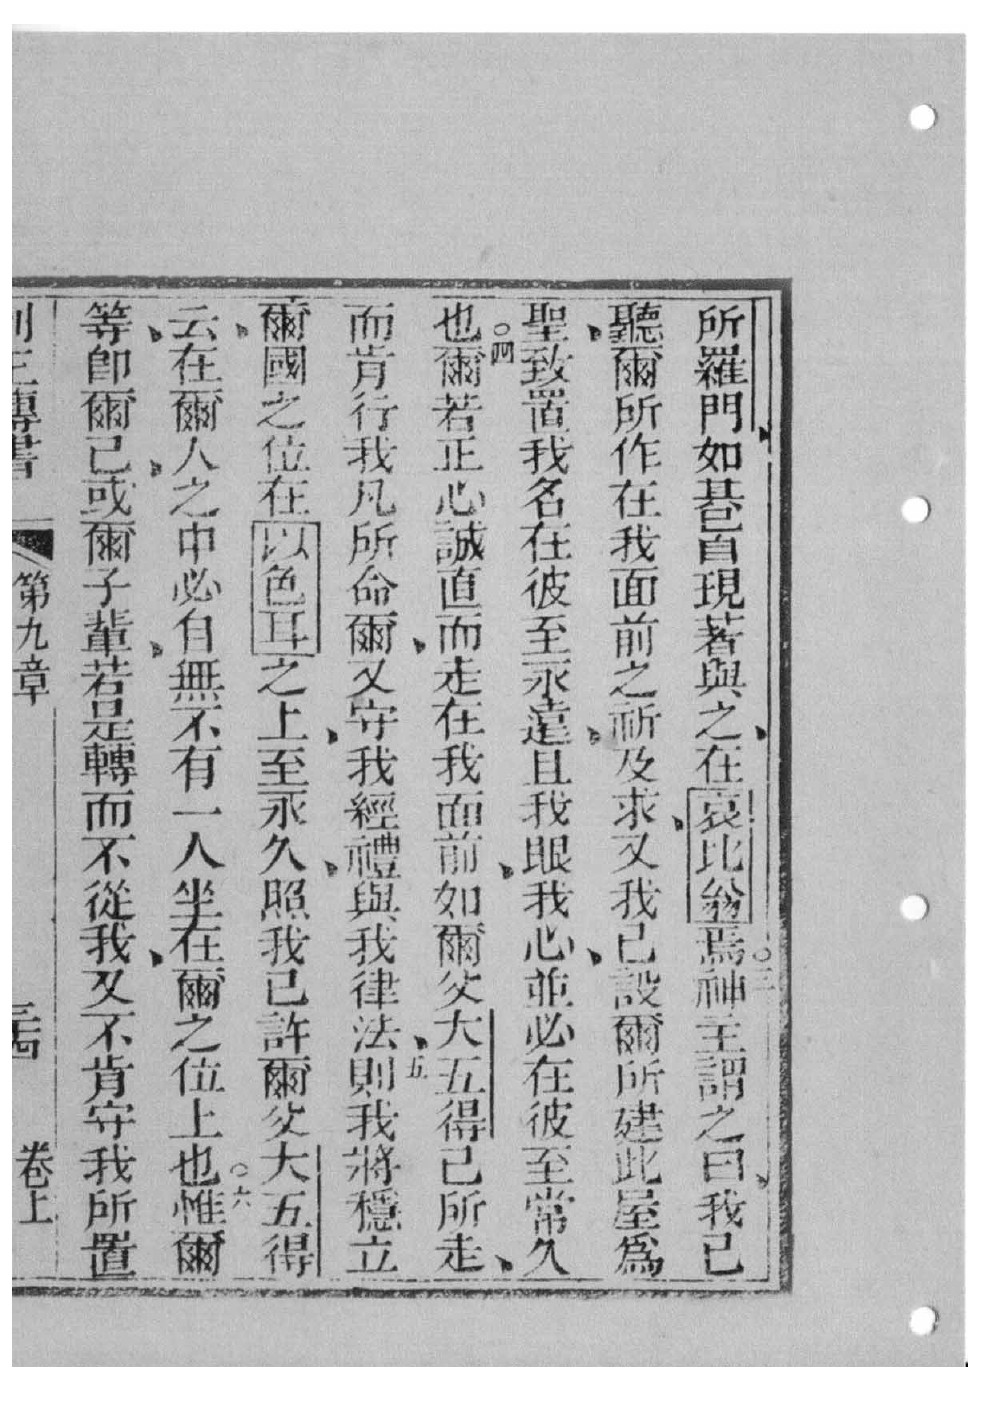 所羅門如碁㠯自現著與之在哀比翁焉○三神主謂之曰我已
聽爾所作在我面前之祈及求又我已設爾所建此屋爲
聖致置我名在彼至永遠且我眼我心並必在彼至常久
也○四爾若正心誠直而走在我面前如爾父大五得已所走
而肯行我凡所命爾又守我經禮與我律法○五則我將穩立
爾國之位在以色耳之上至永久照我已許爾父大五得
云在爾人之中必自無不有一人坐在爾之位上也○六惟爾
等卽爾已或爾子輩若是轉而不從我又不肯守我所置
列王傳書 第九章 卷上